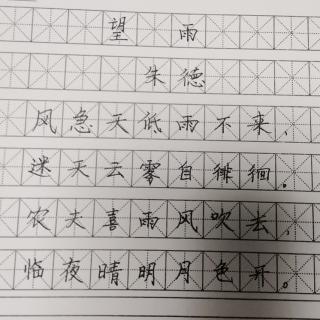 望雨
朱德
风急天低雨不来、
迷天云雾自徘徊。
农夫喜雨风吹去,
临夜晴明月色开。